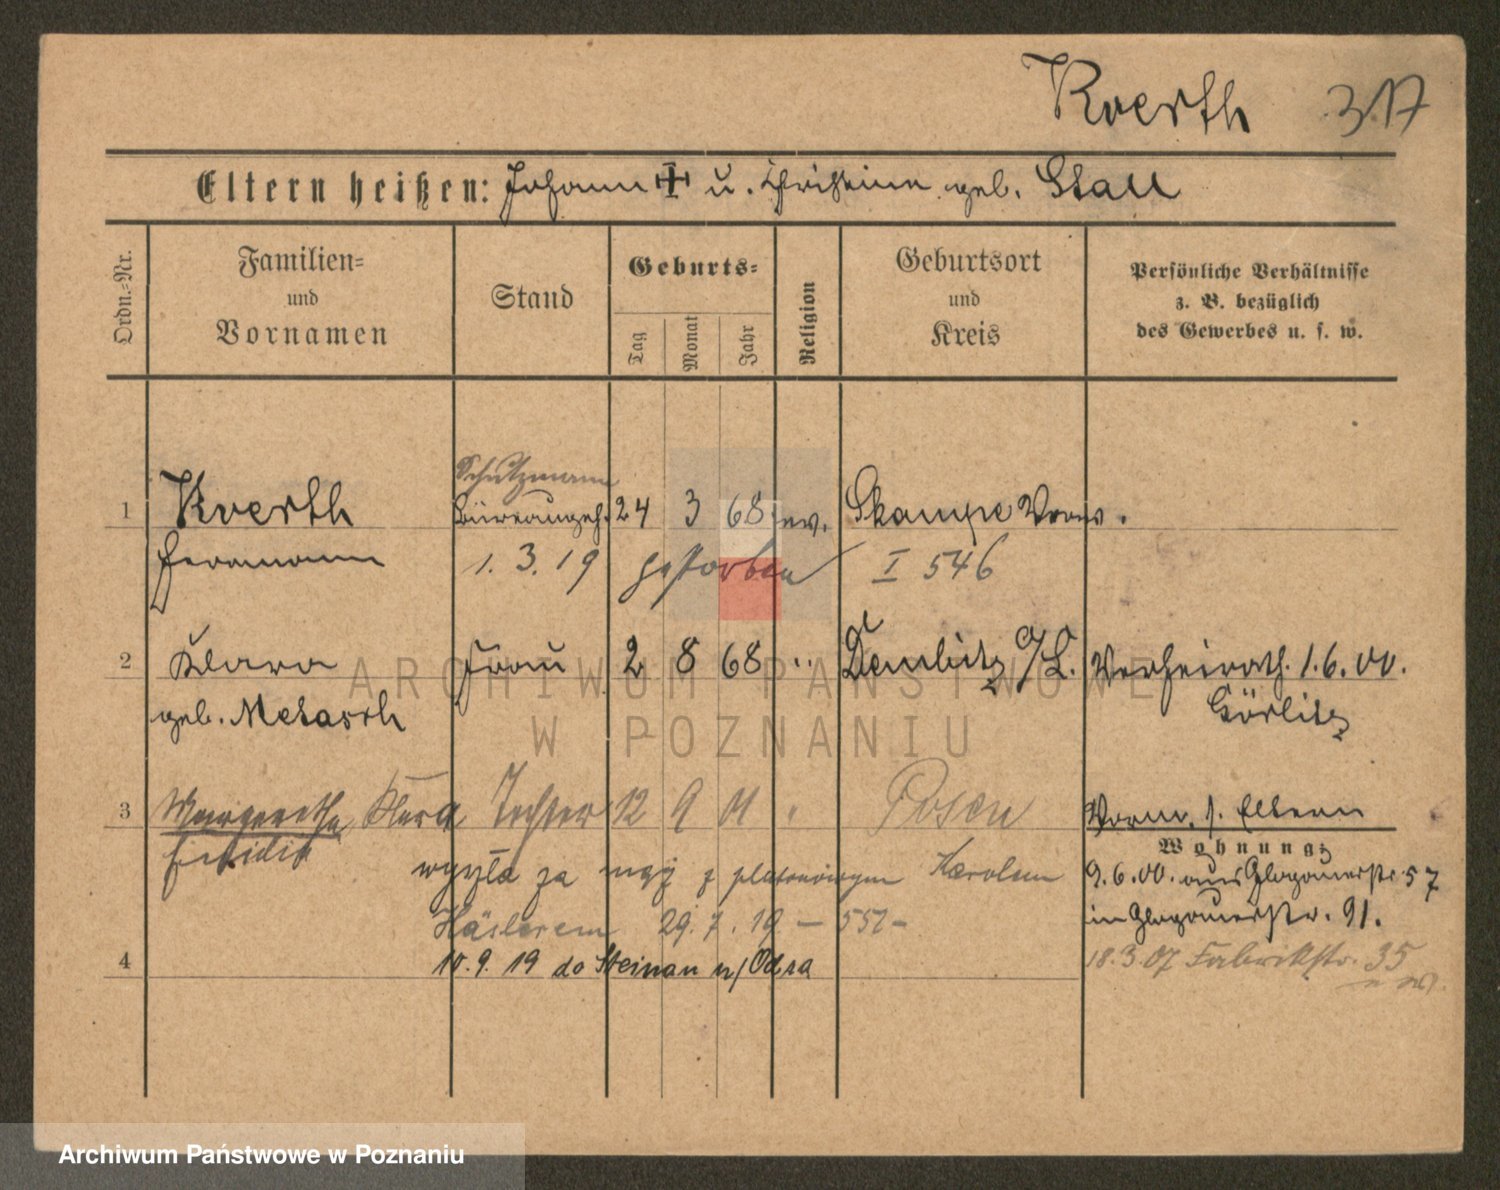 Koerth 317
Eltern heißen: Johann u. Christine geb. Stall
Ordn.=Nr.
Familien=
und
Vornamen
Stand
Geburts=
Tag
Monat
Jahr
Religion
Geburtsort
und
Kreis
Persönliche Verhältnisse
z. B. bezüglich
des Gewerbes u. s. w.
Schutzmann
1 Koerth Büreaugeh. 24 3 68 ev. Skampe
Hermann 1. 3. 19 gestorben I 546
2 Klara Frau 2 8 68 " Demlitz O/L. Verheirath. 1.6.00.
geb. Metasch Görlitz
3 Margarethe Klara Tochter 12 9 01 " Posen Vorm. s. Eltern
Wohnung:
za mąż z Karolem 9.6.00. aus Glogauerstr. 57
Häslerem 29. 7. 19 – in Glogauerstr. 91.
4 10. 9. 19 do Steinau n/Odra 18.3.07 Fabrikstr. 35
ARCHIWUM PAŃSTWOWE
W POZNANIU
Archiwum Państwowe w Poznaniu